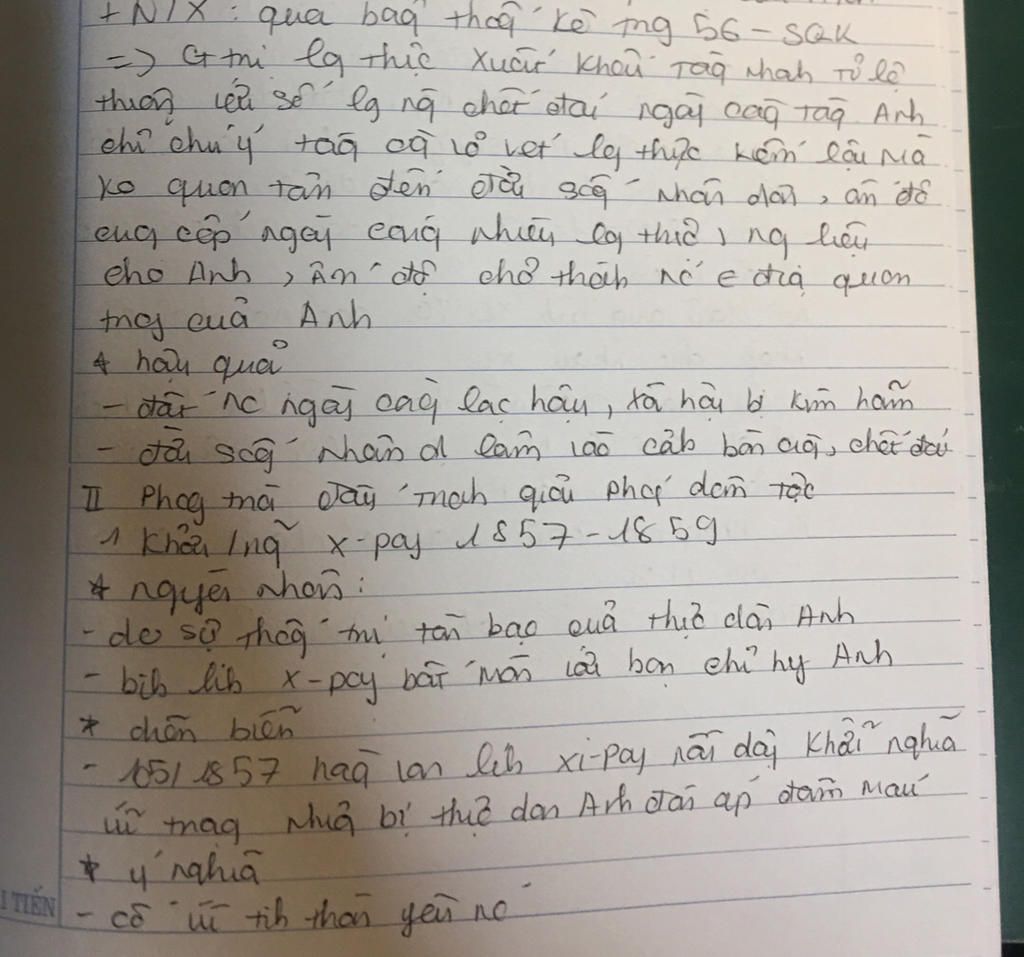 + N/X: qua bag thog kê trg 56 - SGK
=> Gtrị lg thực xuất khẩu tăg nhah tỉ lệ
thuận với số lg ng chết đói ngày càg tăg Anh
chỉ chú ý tăg cg vơ vét lg thực kiếm lậu mà
ko quan tâm đến đời sốg nhân dân, ấn độ
cug cấp ngày càng nhiều lg thực, ng liệu
cho Anh, ấn độ chở thàh nc địa quan
trọg của Anh
* hậu quả
- đất nc ngày càg lạc hậu, xã hội bị kìm hãm
- đời sốg nhân d lâm vào cảh bần cùg, chết đói
II Phog trào đấu trah giải phóg dân tộc
1 Khởi /ng x-pay 1857-1859
* nguyên nhân:
- do sự thốg trị tàn bạo của thực dân Anh
- bih líh x-pay bất mãn với bọn chỉ hy Anh
* diễn biến
- 10/5/1857 hàg vạn líh xi-pay nổi dậy khởi nghĩa
vũ trag nhưg bị thực dân Anh đàn áp đẫm máu
* ý nghĩa
I TIẾN
- cổ vũ tih thần yêu nc